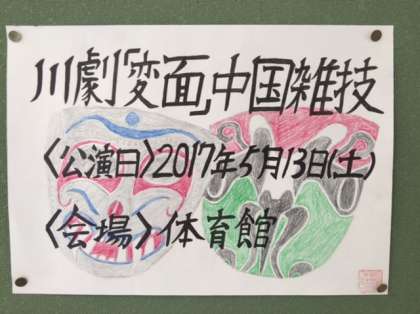 川劇「変面」,中国雑技
〈公演日〉2017年5月13日(土)
〈会場〉体育館